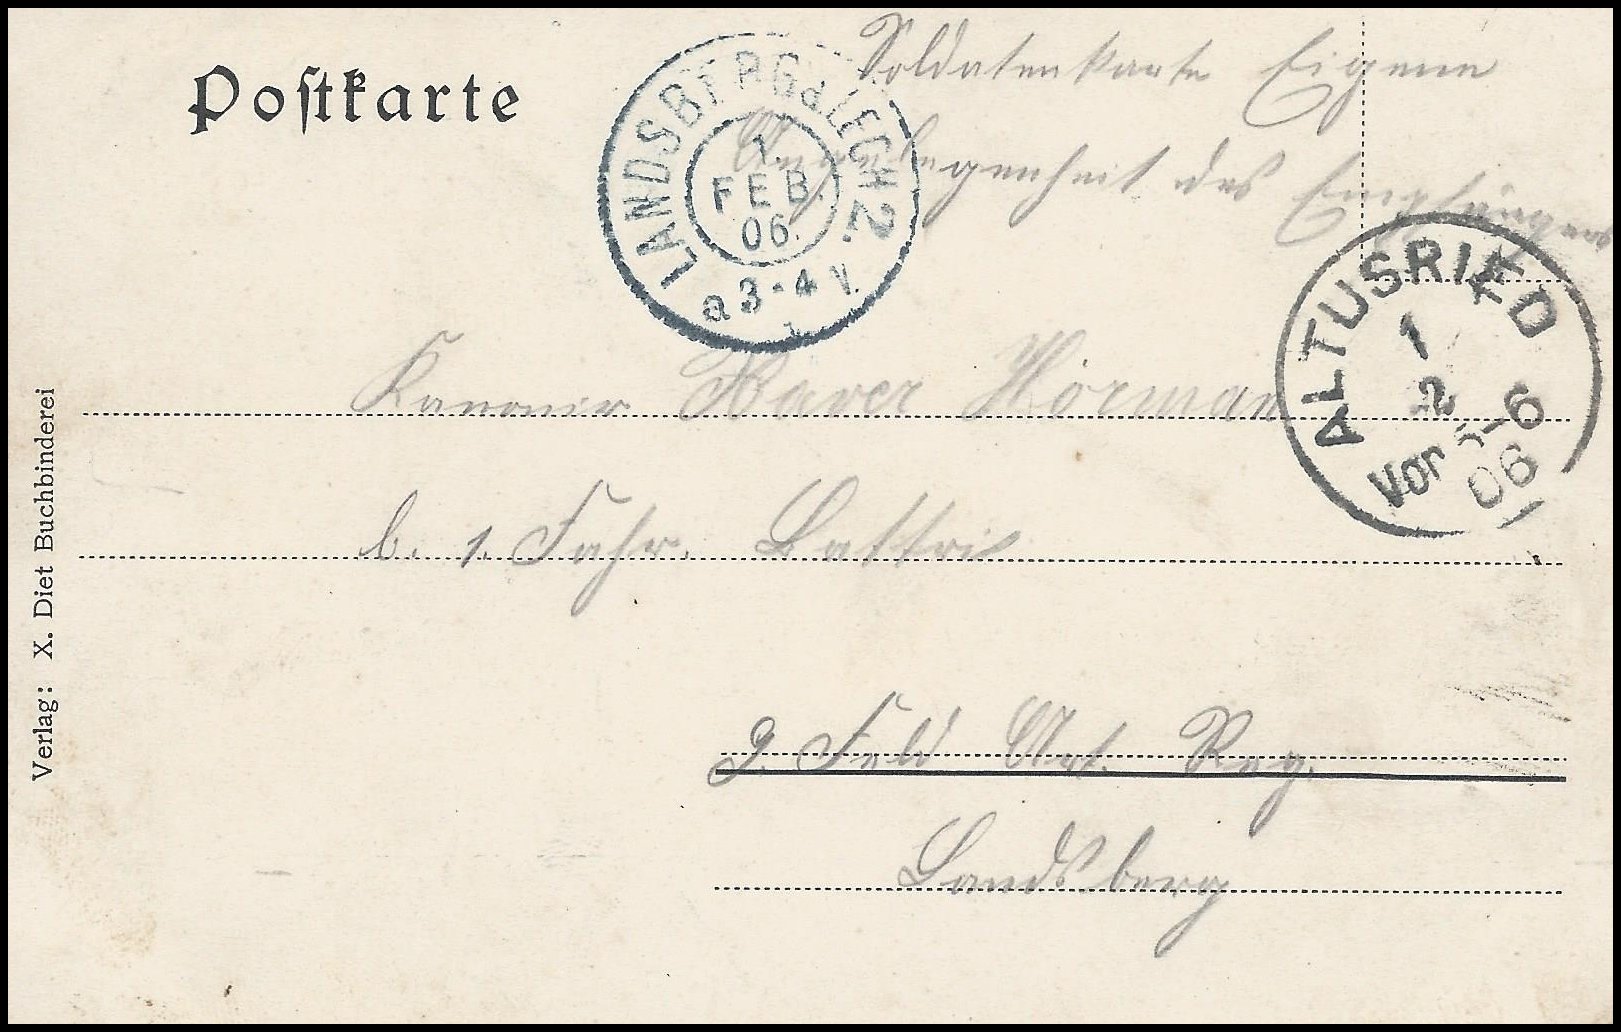 Postkarte
Soldatenkarte Eigene
Angelegenheit des Empfängers
LANDSBERG a. LECH 2.
1.
FEB.
06.
a 3-4 V.
ALTUSRIED
1
2
Vor 5-6
06
Kanonir Xaver Hörman
b. 1. Fahr. Battri
9. Feld Art. Reg.
Landsberg
Verlag: X. Diet Buchbinderei